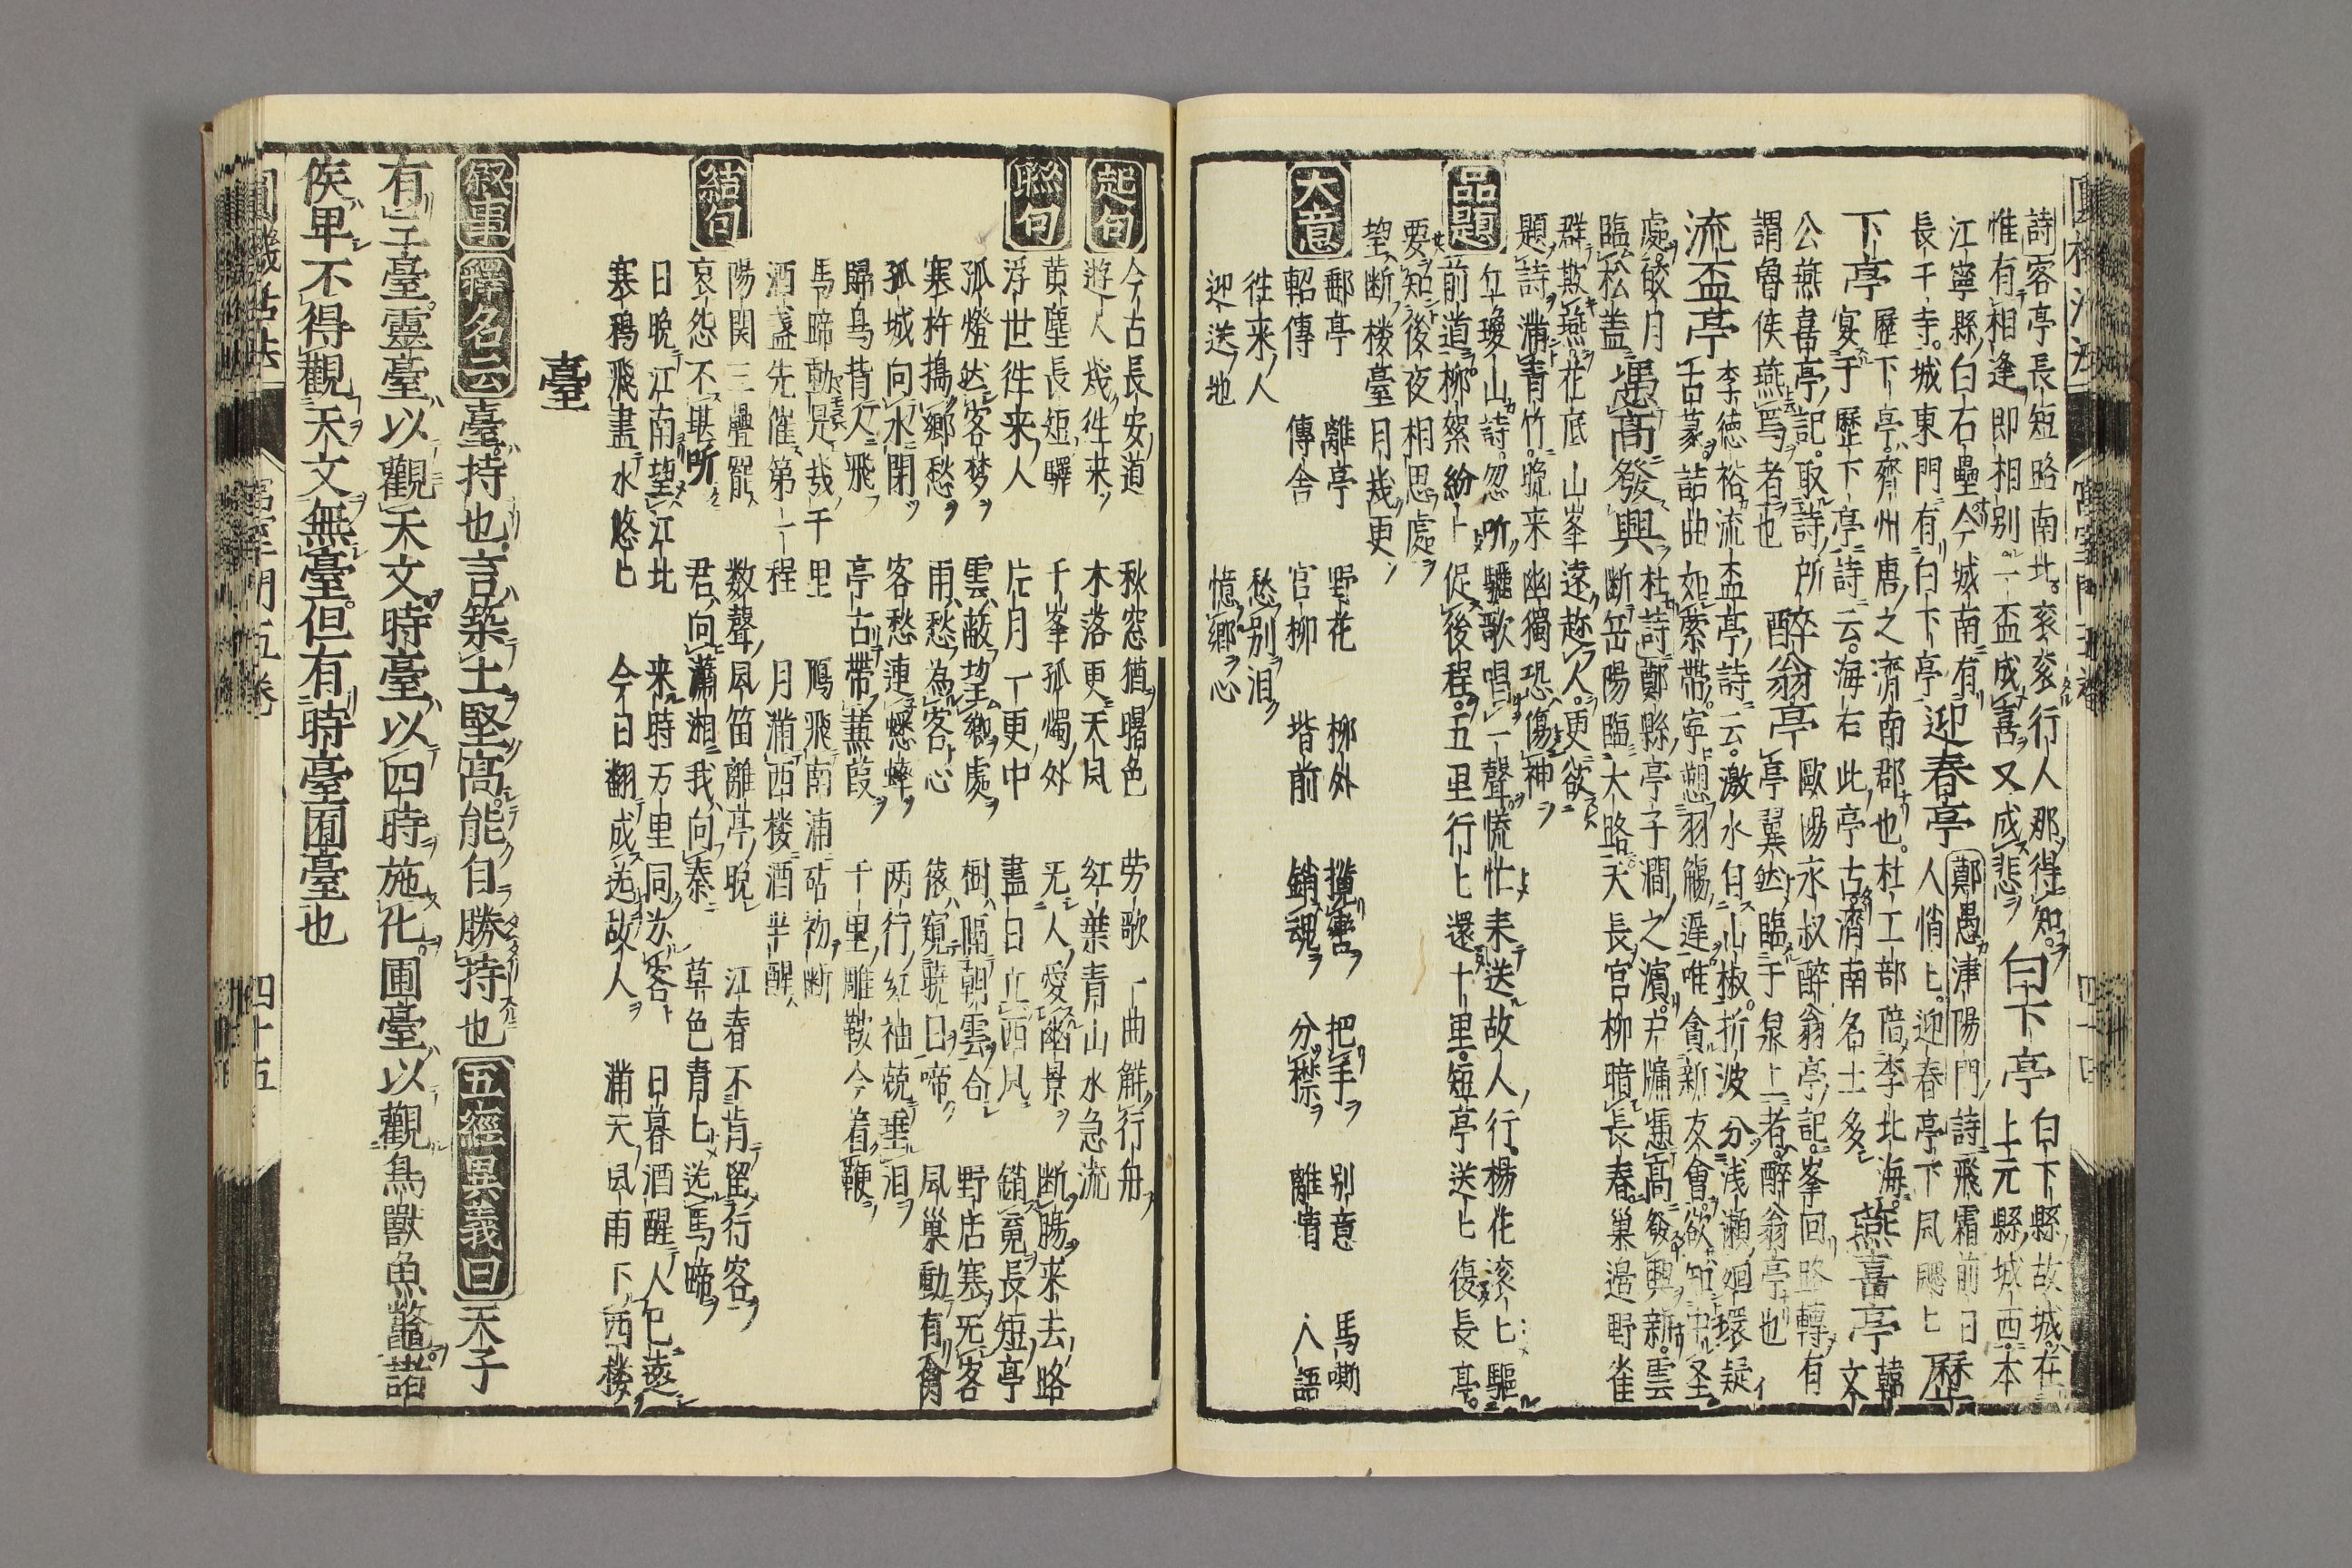 詩客亭長短路南北衮衮行人那得知白下亭白下縣故城在
惟有相逢即相别一盃成喜又成悲上元縣城西本
江寧縣白石壘今城南有迎春亭鄭愚津陽門詩飛霜前日
長干寺城東門有白下亭人悄〻迎春亭下風颸〻歷
下亭歷下亭齊州唐之濟南郡也杜工部陪李北海燕喜亭韓
宴于歷下亭詩云海右此亭古濟南名士多文
公燕喜亭記取詩所醉翁亭歐陽永叔醉翁亭記峯回路轉有
謂魯侯燕焉者也亭翼然臨于泉上者醉翁亭也
流盃亭李德裕流盃亭詩云激水自山椒折波分浅瀬廻環疑
古篆詰曲如縈帶寧愬羽觴遲唯貪新友會欲知中圣
處皎月遇高發興杜詩鄭縣亭子澗之濱戸牖憑高發興新雲
臨松盖断岳陽臨大路天長宮柳暗長春巢邉野雀
群欺燕花底山峯遠趂人更欲
題詩滿青竹晩来幽獨恐傷神
品題丘瓊山詩忽听驪歌唱一聲慌忙来送故人行楊花滚〻驅
前道柳絮紛〻促後程五里行〻還十里短亭送〻復長亭
要知後夜相思處
望断楼臺月幾更
大意郵亭離亭野花柳外攬轡把手别意馬嘶
軺傳傳舎官柳堦前銷魂分襟離情人語
徃来人愁别泪
迎送地憶鄉心
起句今古長安道秋窓猶曙色労歌一曲觧行舟
遊人幾徃来木落更天風紅葉青山水急流
聯句黄塵長短驛千峯孤燭外无人愛幽景断膓来去路
浮世徃来人片月一更中盡日立西風銷魂長短亭
孤燈然客梦雲蔽望鄉處樹隔朝雲合野店寒无客
寒杵搗鄉愁雨愁為客心猿窺曉日啼風巢動有禽
孤城向水閉客愁連蟋蟀两行紅袖兢垂泪
歸鳥背人飛亭古帶蒹葭千里雕鞍今着鞭
馬啼動是幾千里鴈飛南浦砧初断
酒盞先催第一程月滿西楼酒半醒
陽関三疊罷数聲風笛離亭晩江春不肯留行客
哀怨不堪听君向瀟湘我向秦草色青〻送馬啼
結句日晩江南望江北来時万里同為客日暮酒醒人已遠
寒鴉飛盡水悠〻今日翻成送故人滿天風雨下西楼
臺
叙事釋名云臺持也言築土堅高能自勝持也五經異義曰天子
有三臺靈臺以觀天文時臺以四時施化囿臺以觀鳥獸魚鼈諸
侯卑不得觀天文無臺但有時臺囿臺也
四十五